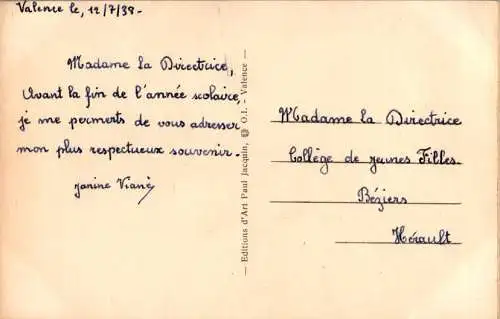 Valence le, 12/7/38-
Madame la Directrice,
Avant la fin de l'année scolaire,
je me permets de vous adresser
mon plus respectueux souvenir.-
Janine
— Editions d'Art Paul Jacquin, O.I. - Valence —
Madame la Directrice
Collège de jeunes Filles
Béziers
Hérault